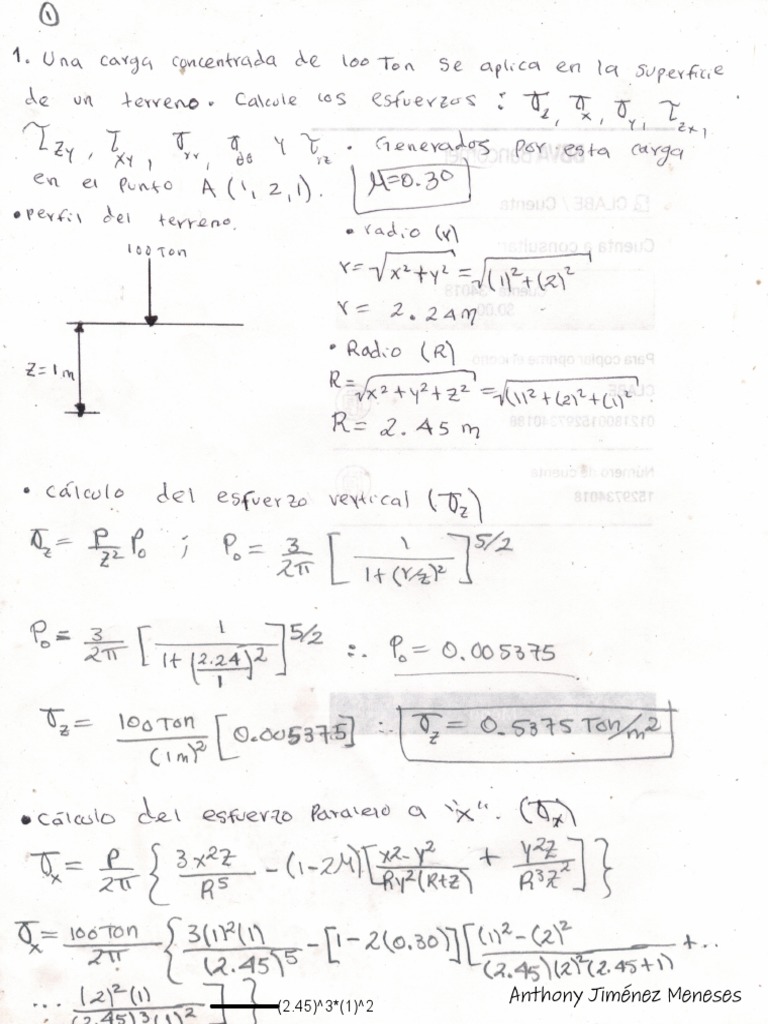 1
1. Una carga concentrada de 100 Ton se aplica en la superficie
de un terreno. Calcule los esfuerzos: σz, σx, σy, τzx,
τzy, τxy, σrr, σθθ y τrz. Generados por esta carga
en el punto A (1, 2, 1). μ=0.30
• perfil del terreno.
100 Ton
Z=1m
• radio (r)
r=√x²+y² =√(1)²+(2)²
r= 2.24m
• Radio (R)
R=√x²+y²+z² =√(1)²+(2)²+(1)²
R= 2.45 m
• cálculo del esfuerzo vertical (σz)
σz= P/z² P₀ ; P₀= 3/2π [1/1+(r/z)²]^5/2
P₀= 3/2π [1/1+(2.24/1)²]^5/2 ∴ P₀= 0.005375
σz= 100 Ton/(1m)² [0.005375] ∴ σz= 0.5375 Ton/m²
• cálculo del esfuerzo paralelo a "x". (σx)
σx= P/2π {3x²z/R⁵ -(1-2μ)[x2-y²/Ry²(R+z) + y²z/R³z²]}
σx= 100 Ton/2π {3(1)²(1)/(2.45)⁵ -[1-2(0.30)][(1)²-(2)²/(2.45)(2)²(2.45+1) +...
... (2)²(1)/(2.45)3(1)²]} (2.45)^3*(1)^2
Anthony Jiménez Meneses